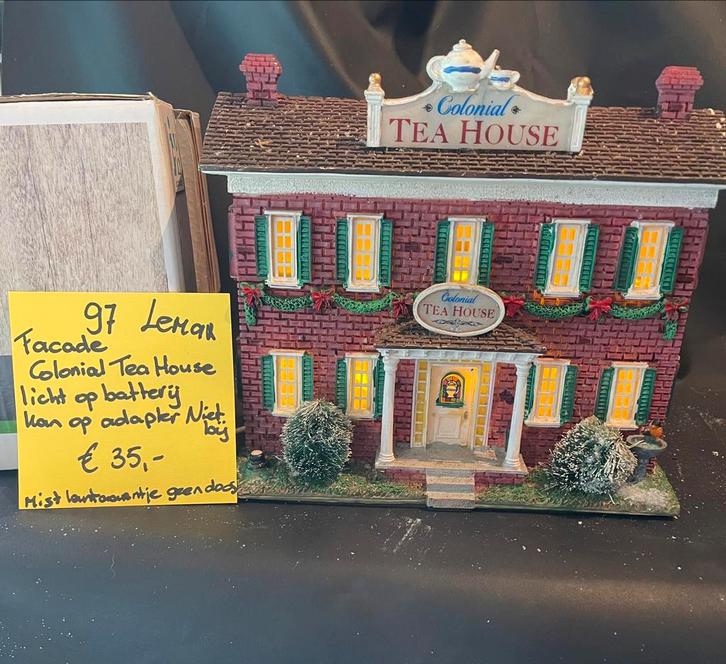 Colonial
TEA HOUSE
Colonial
TEA HOUSE
97 Lemax
Facade
Colonial Tea House
licht op batterij
kan op adapter Niet
bij
€ 35,-
Mist geen doos